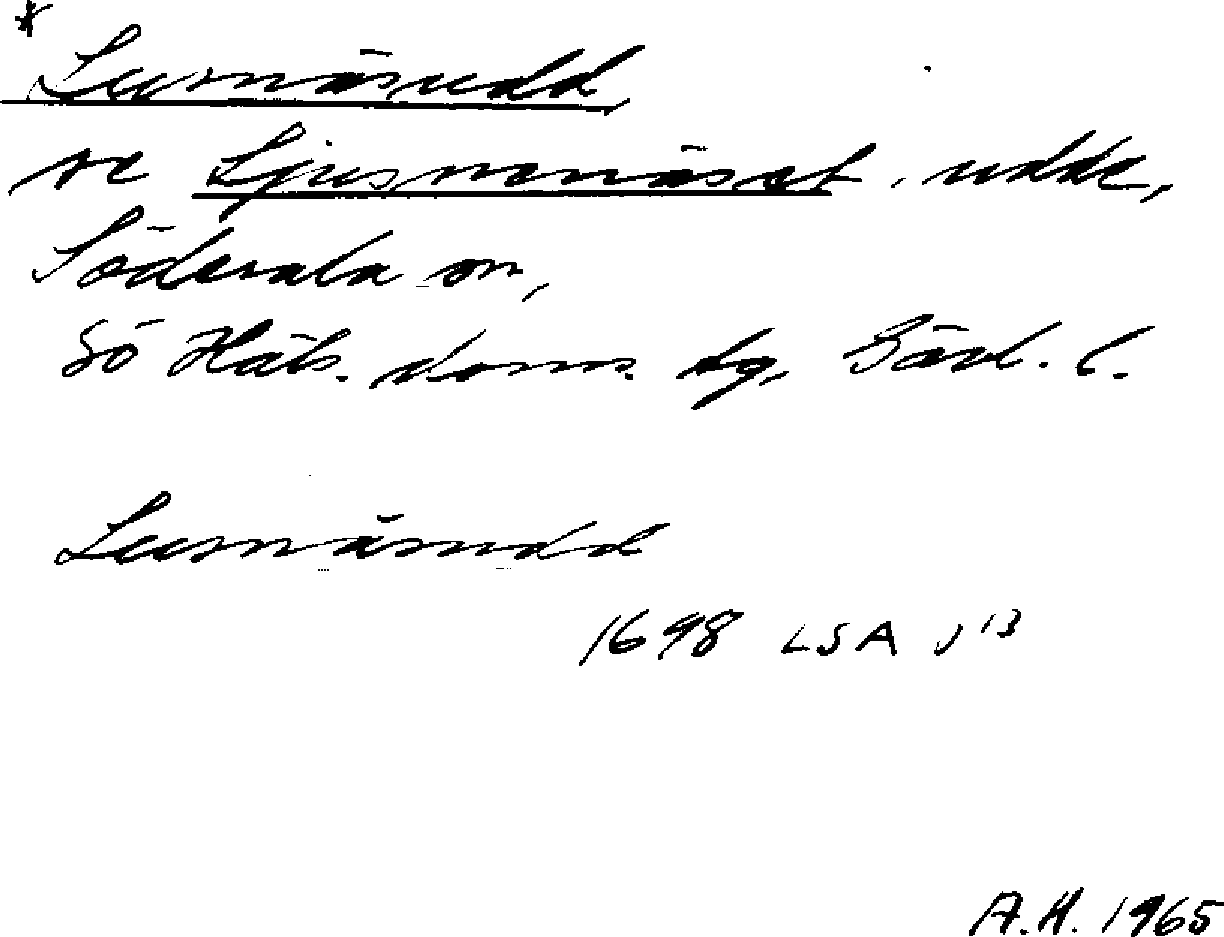 *
Lusnäsudd
se Ljusnenäset, udde,
Söderala sn,
SÖ Häls. doms. tg, Gävl. l.
Lusnäsudd
1698 LSA J 13
A.H. 1965